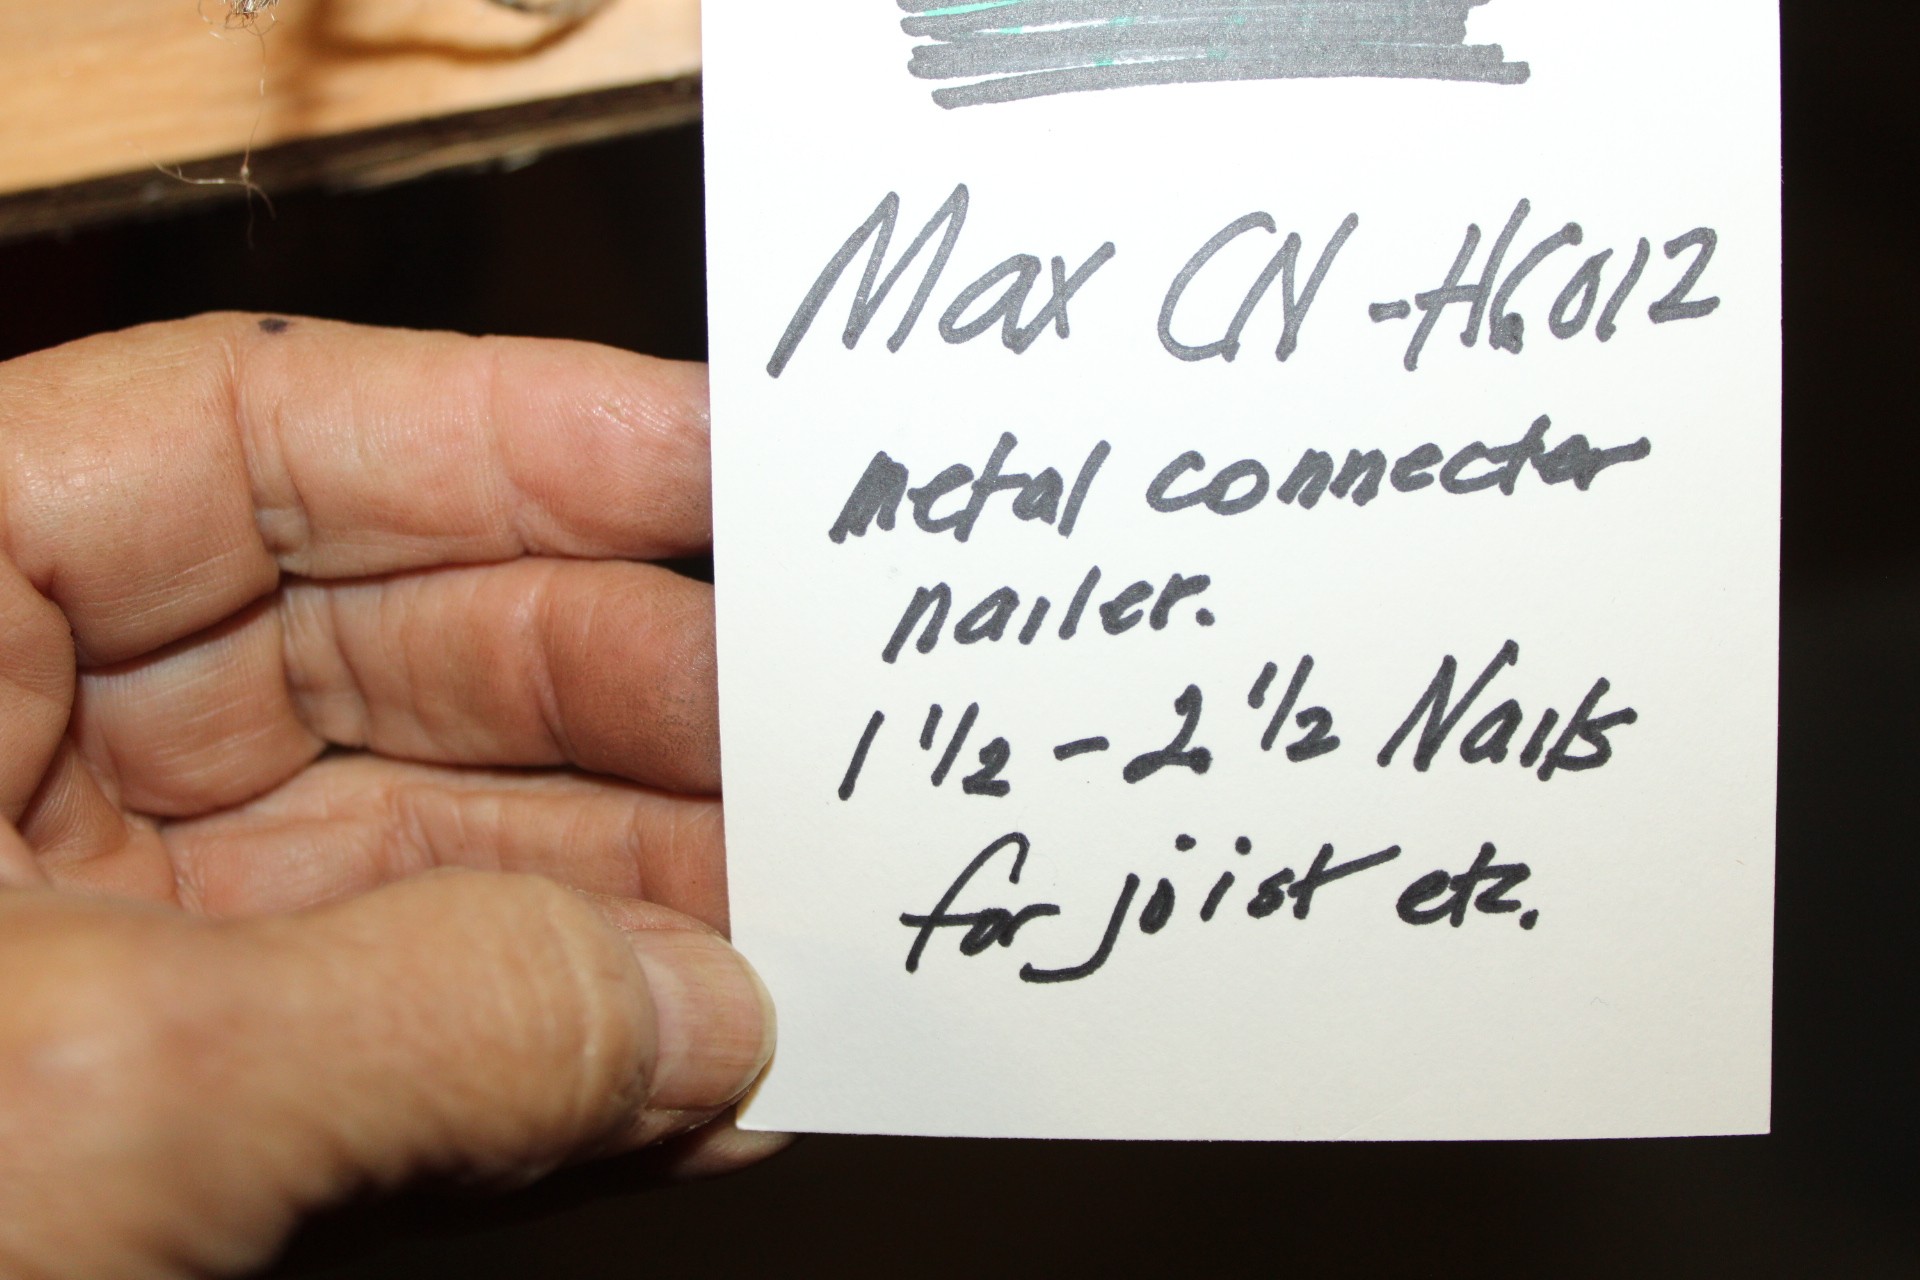 Max CN
metal connector
nailer.
1 1/2 - 2 1/2 Nails
for joist etc.